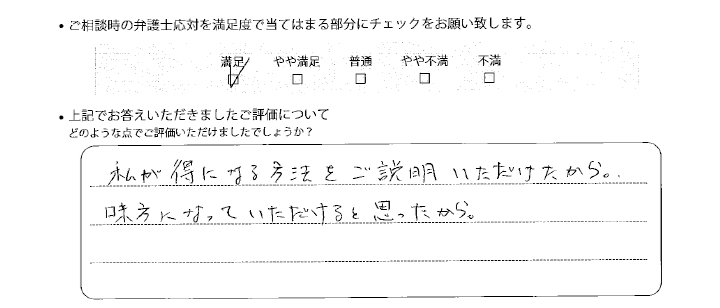 ・ご相談時の弁護士応対を満足度で当てはまる部分にチェックをお願い致します。
満足 やや満足 普通 やや不満 不満
・上記でお答えいただきましたご評価について
どのような点でご評価いただけましたでしょうか？
私が得になる方法をご説明いただけたから。
味方になっていただけると思ったから。